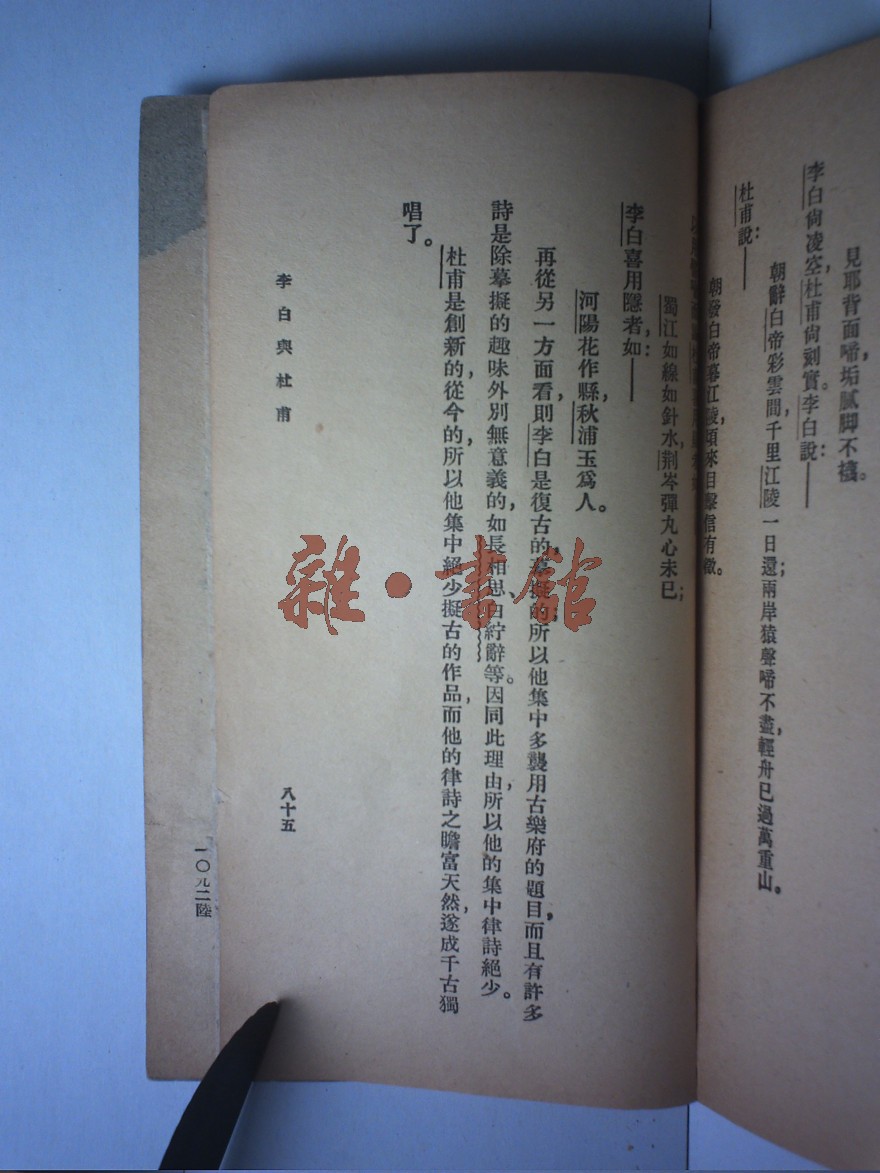 見耶背面啼垢膩脚不襪。
李白尙凌空，杜甫尙刻實。李白說：——
朝辭白帝彩雲間，千里江陵一日還；兩岸猿聲啼不盡，輕舟已過萬重山。
杜甫說：——
朝發白帝暮江陵，頃來目擊信有徵。
蜀江如線如針水，荆岑彈丸心未已；
李白喜用隱者，如：——
河陽花作縣，秋浦玉爲人。
再從另一方面看，則李白是復古的，摹擬的；所以他集中多襲用古樂府的題目，而且有許多
詩是除摹擬的趣味外別無意義的，如長相思、白紵辭等。因同此理由，所以他的集中律詩絕少。
杜甫是創新的，從今的，所以他集中絕少擬古的作品，而他的律詩之瞻富天然，遂成千古獨
唱了。
李白與杜甫
八十五
一〇九二陸
雜·書館